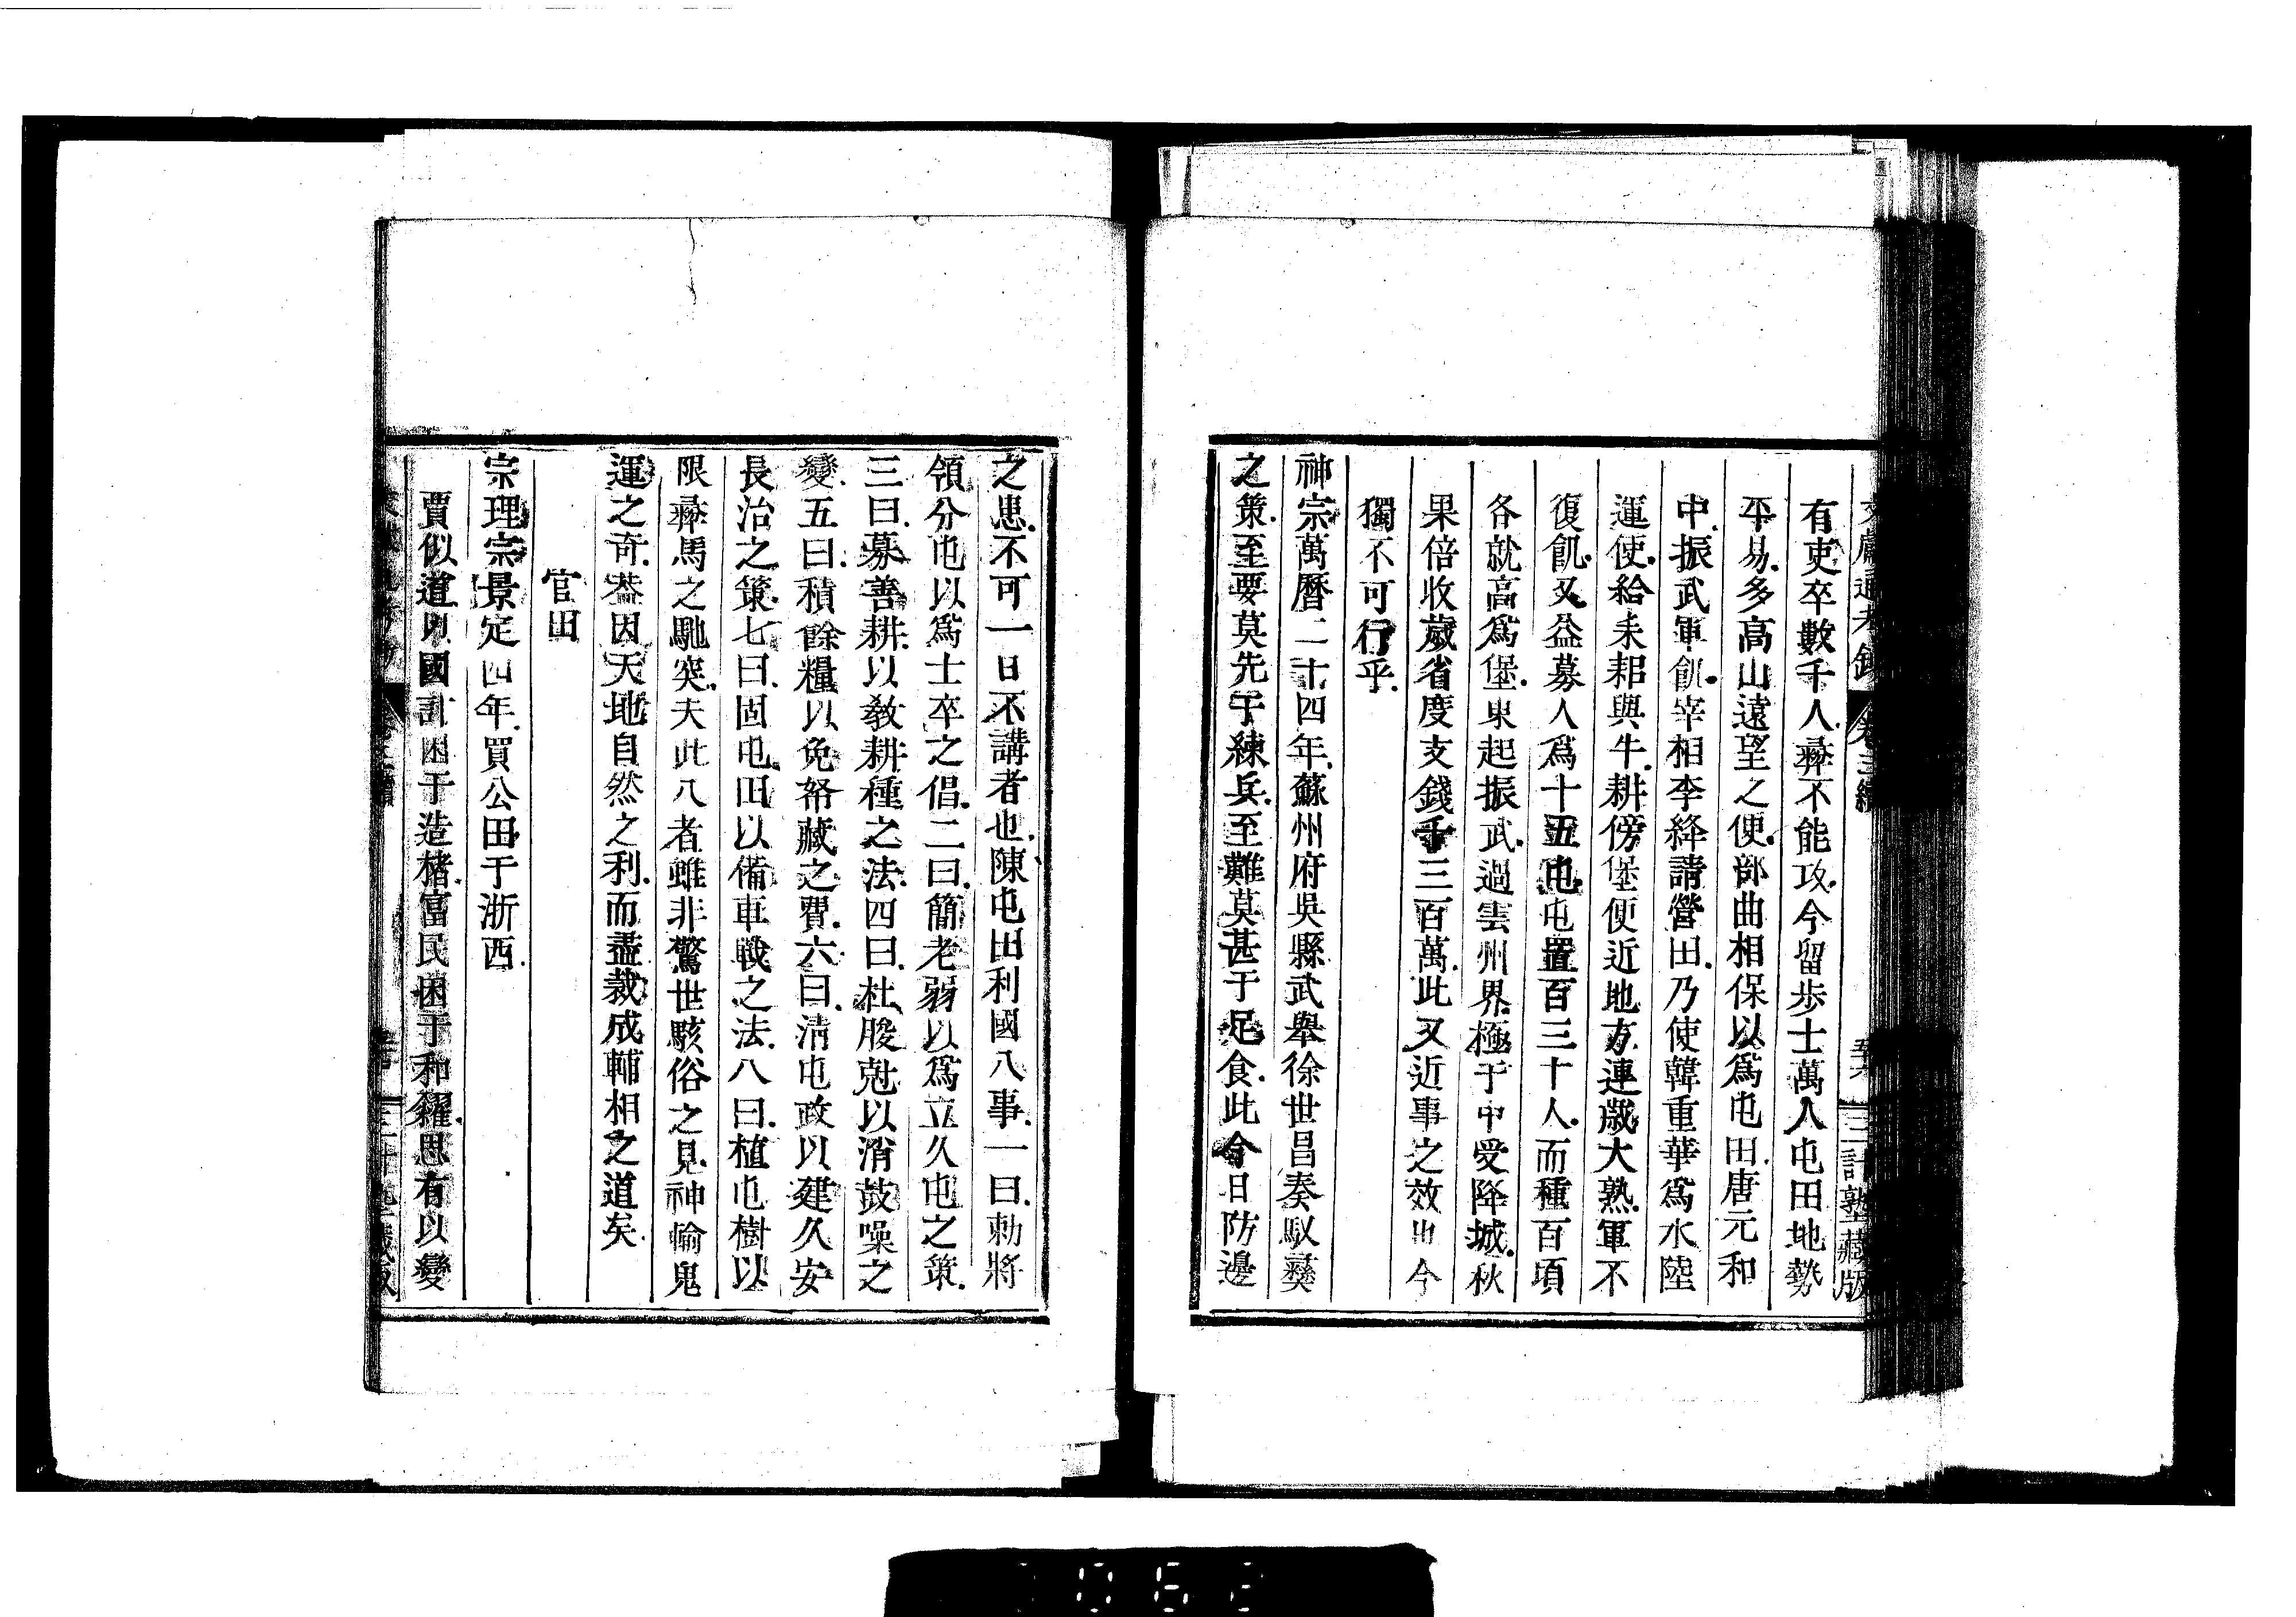 文獻通考鈔 卷三續 三語塾藏版
有吏卒數千人彝不能攻今留步士萬人屯田地勢
平易多高山遠望之便部曲相保以爲屯田唐元和
中振武軍飢宰相李絳請營田乃使韓重華爲水陸
運使給耒耜與牛耕傍堡便近地方連歲大熟軍不
復飢又益募人爲十五屯屯置百三十人而種百頃
各就高爲堡東起振武過雲州界極于中受降城秋
果倍收歲省度支錢千三百萬此又近事之效也今
獨不可行乎
神宗萬曆二十四年蘇州府吳縣武舉徐世昌奏馭彝
之策至要莫先于練兵至難莫甚于足食此今日防邊
之患不可一日不講者也陳屯田利國八事一曰勅將
領分屯以爲士卒之倡二曰簡老弱以爲立久屯之策
三曰募善耕以敎耕種之法四曰杜朘尅以消鼓噪之
變五曰積餘糧以免帑藏之費六曰淸屯政以建久安
長治之策七曰固屯田以備車戰之法八曰植屯樹以
限彝馬之馳突夫此八者雖非驚世駭俗之見神輸鬼
運之奇葢因天地自然之利而盡裁成輔相之道矣
官田
宗理宗景定四年買公田于浙西
賈似道以國計困于造楮富民困于和糴思有以變